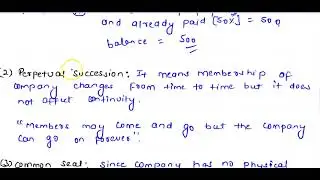 and already paid [50%] = 500
balance = 500
(2) Perpetual Succession: It means membership of
company changes from time to time but it does
not affect continuity.
"Members may come and go but the company
can go on forever".
(3) Common seal: since company has no physical